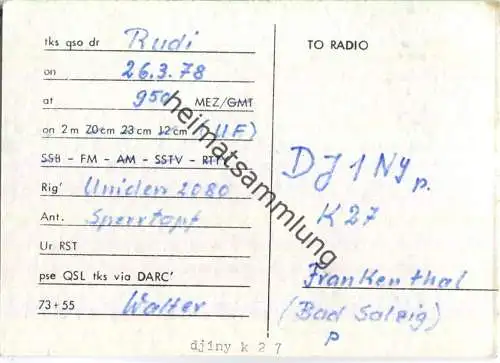 tks qso dr Rudi
on 26.3.78
at 950 MEZ/GMT
on 2 m 70 cm 23 cm 12 cm (UF)
SSB - FM - AM - SSTV - RTTY
Rig' Uniden 2080
Ant. Sperrtopf
Ur RST
pse QSL tks via DARC'
73 + 55 Walter
TO RADIO
DJ1NY p.
K27
Frankenthal
(Bad Salzig)
p
dj1ny k 2 7
heimatsammlung